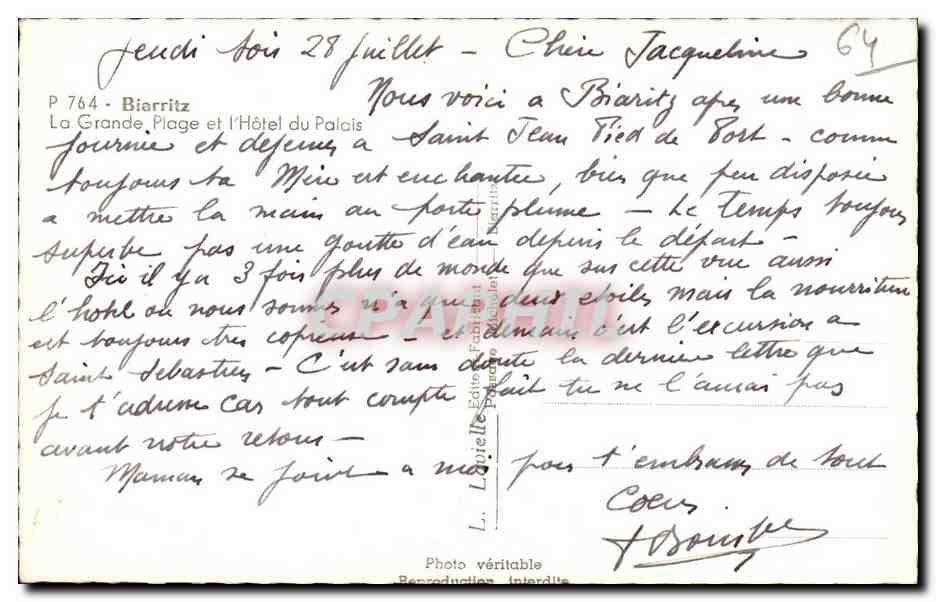 Jeudi soir 28 Juillet - Chère Jacqueline
64
P 764 - Biarritz
La Grande Plage et l'Hôtel du Palais
Nous voici a Biaritz apres une bonne
journée et dejeuner a Saint Jean Pied de Port - comme
toujours ta Mère est enchantée, bien que peu disposée
a mettre la main au porte plume - Le temps toujours
superbe pas une goutte d'eau depuis le départ -
Ici il y a 3 fois plus de monde que sur cette vue aussi
l'hotel ou nous sommes n'a que deux etoiles mais la nourriture
est toujours tres copieuse - et demain c'est l'excursion a
Saint Sebastien - C'est sans doute la dernière lettre que
je t'adresse car tout compte fait tu ne l'aurai pas
avant notre retour -
Maman se joint a moi pour t'embrasser de tout
Coeur
L. Lavielle Editeur-Fabricant
Biarritz
CPAPHIL
Photo véritable
Reproduction interdite